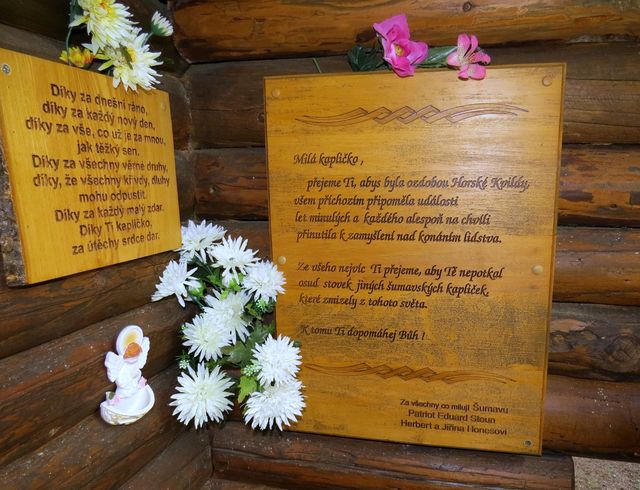 Díky za dnešní ráno,
díky za každý nový den,
díky za vše, co už je za mnou,
jak těžký sen.
Díky za všechny věrné druhy,
díky, že všechny křivdy, dluhy
mohu odpustit.
Díky za každý malý zdar.
Díky Ti kapličko,
za útěchy srdce dar.
Milá kapličko ,
přejeme Ti, abys byla ozdobou Horské Kvildy,
všem příchozím připoměla události
let minulých a každého alespoň na chvíli
přinutila k zamyšlení nad konáním lidstva.
Ze všeho nejvíc Ti přejeme, aby Tě nepotkal
osud stovek jiných šumavských kapliček,
které zmizely z tohoto světa.
K tomu Ti dopomáhej Bůh !
Za všechny co milují Šumavu
Patriot Eduard Stoun
Herbert a Jiřina Honesovi